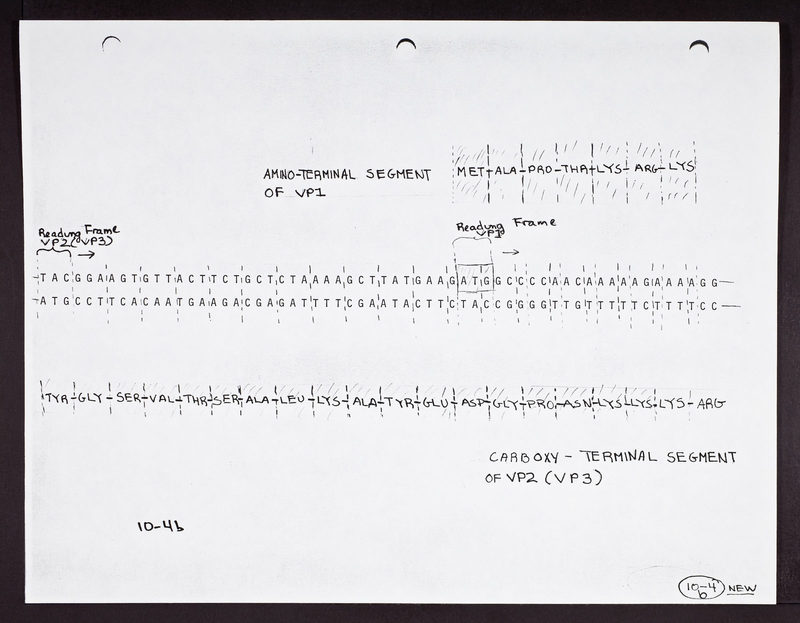 AMINO-TERMINAL SEGMENT
OF VP1
MET-ALA-PRO-THR-LYS-ARG-LYS
Reading Frame
VP2 (VP3)
Reading Frame
VP1
TACGGAAGTGTTACTTCTGCTCTAAAAGCTTATGAAGATGGCCCCAACAAAAAGAAAAGG
ATGCCTTCACAATGAAGACGAGATTTTCGAATACTTCTACCGGGGTTGTTTTTCTTTTCC
TYR-GLY-SER-VAL-THR-SER-ALA-LEU-LYS-ALA-TYR-GLU-ASP-GLY-PRO-ASN-LYS-LYS-LYS-ARG
CARBOXY-TERMINAL SEGMENT
OF VP2 (VP3)
10-4b
10-4 NEW
b